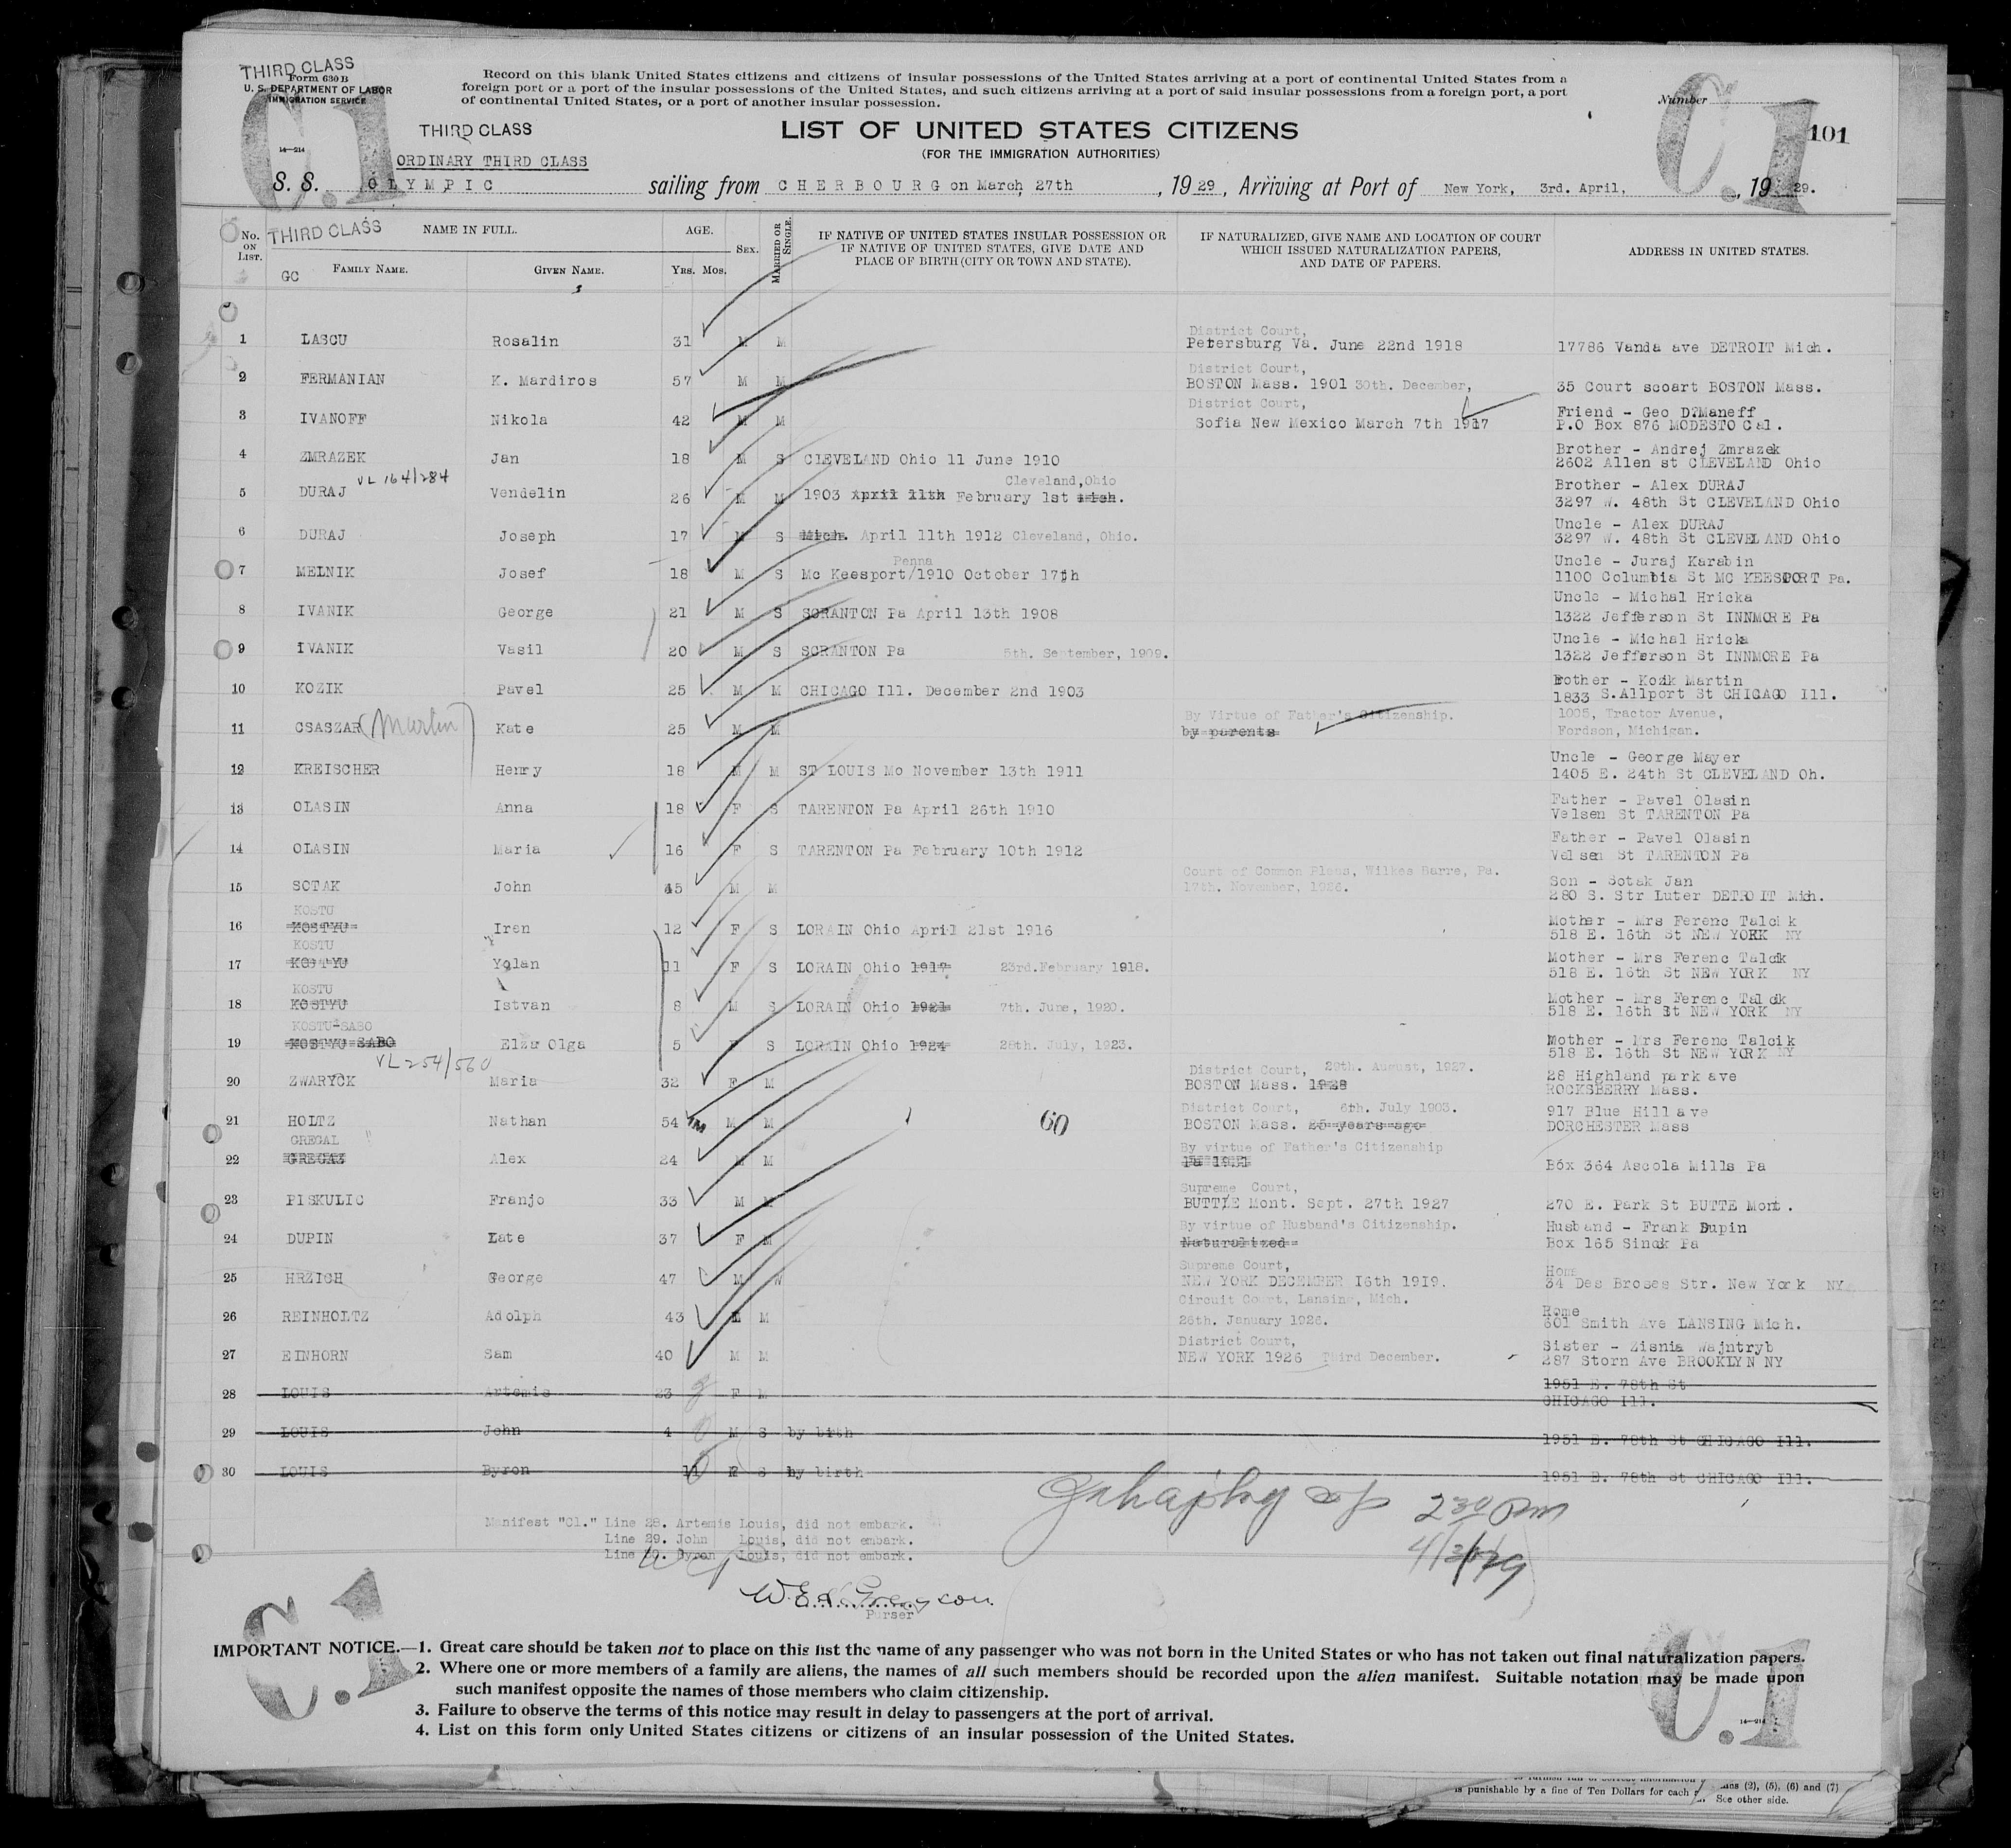 THIRD CLASS
Form 630 B
U. S. DEPARTMENT OF LABOR
IMMIGRATION SERVICE
C.1
14—214
Record on this blank United States citizens and citizens of insular possessions of the United States arriving at a port of continental United States from a
foreign port or a port of the insular possessions of the United States, and such citizens arriving at a port of said insular possessions from a foreign port, a port
of continental United States, or a port of another insular possession.
Number
C.1
101
THIRD CLASS
LIST OF UNITED STATES CITIZENS
(FOR THE IMMIGRATION AUTHORITIES)
ORDINARY THIRD CLASS
S. S. OLYMPIC sailing from CHERBOURG on March 27th, 1929, Arriving at Port of New York, 3rd. April, 1929.
No. ON LIST. THIRD CLASS NAME IN FULL. AGE. SEX. MARRIED OR SINGLE. IF NATIVE OF UNITED STATES INSULAR POSSESSION OR IF NATIVE OF UNITED STATES, GIVE DATE AND PLACE OF BIRTH (CITY OR TOWN AND STATE). IF NATURALIZED, GIVE NAME AND LOCATION OF COURT WHICH ISSUED NATURALIZATION PAPERS, AND DATE OF PAPERS. ADDRESS IN UNITED STATES.
GC FAMILY NAME. GIVEN NAME. Yrs. Mos.
District Court,
1 LASCU Rosalin 31 M M Petersburg Va. June 22nd 1918 17786 Vanda ave DETROIT Mich.
District Court,
2 FERMANIAN K. Mardiros 57 M M BOSTON Mass. 1901 30th. December, 35 Court scoart BOSTON Mass.
District Court, Friend - Geo D?Maneff
3 IVANOFF Nikola 42 M M Sofia New Mexico March 7th 1917 P.O Box 876 MODESTO Cal.
Brother - Andrej Zmrazek
4 ZMRAZEK Jan 18 M S CLEVELAND Ohio 11 June 1910 2602 Allen st CLEVELAND Ohio
VL 164/284 Cleveland, Ohio Brother - Alex DURAJ
5 DURAJ Vendelin 26 M M 1903 April 11th February 1st Mich. 3297 W. 48th St CLEVELAND Ohio
Uncle - Alex DURAJ
6 DURAJ Joseph 17 M S Mich. April 11th 1912 Cleveland, Ohio. 3297 W. 48th St CLEVELAND Ohio
Penna Uncle - Juraj Karabin
7 MELNIK Josef 18 M S Mc Keesport/1910 October 17th 1100 Columbia St MC KEESPORT Pa.
Uncle - Michal Hricka
8 IVANIK George 21 M S SCRANTON Pa April 13th 1908 1322 Jefferson St INNMORE Pa
Uncle - Michal Hricka
9 IVANIK Vasil 20 M S SCRANTON Pa 5th. September, 1909. 1322 Jefferson St INNMORE Pa
Brother - Kozik Martin
10 KOZIK Pavel 25 M M CHICAGO Ill. December 2nd 1903 1833 S.Allport St CHICAGO Ill.
By Virtue of Father's Citizenship. 1005, Tractor Avenue,
11 CSASZAR (Martin) Kate 25 M M by parents Fordson, Michigan.
Uncle - George Mayer
12 KREISCHER Henry 18 M M ST LOUIS Mo November 13th 1911 1405 E. 24th St CLEVELAND Oh.
Father - Pavel Olasin
13 OLASIN Anna 18 F S TARENTON Pa April 26th 1910 Velsen St TARENTON Pa
Father - Pavel Olasin
14 OLASIN Maria 16 F S TARENTON Pa February 10th 1912 Velsen St TARENTON Pa
Court of Common Pleas, Wilkes Barre, Pa.
15 SOTAK John 45 M M 17th. November, 1926. Son - Sotak Jan
280 S. Str Luter DETROIT Mich.
KOSTU Mother - Mrs Ferenc Talcik
16 KOSTYU Iren 12 F S LORAIN Ohio April 21st 1916 518 E. 16th St NEW YORK NY
KOSTU Mother - Mrs Ferenc Talcik
17 KOSTYU Yolan 11 F S LORAIN Ohio 1917 23rd.February 1918. 518 E. 16th St NEW YORK NY
KOSTU Mother - Mrs Ferenc Talcik
18 KOSTYU Istvan 8 M S LORAIN Ohio 1921 7th. June, 1920. 518 E. 16th St NEW YORK NY
KOSTU-SABO Mother - Mrs Ferenc Talcik
19 KOSTYU SABO Elza Olga 5 F S LORAIN Ohio 1924 28th. July, 1923. 518 E. 16th St NEW YORK NY
VL 254/560 District Court, 29th. August, 1927. 28 Highland park ave
20 ZWARYCK Maria 32 F M BOSTON Mass. 1928 ROCKSBERRY Mass.
District Court, 6th. July 1903. 917 Blue Hill ave
21 HOLTZ Nathan 54 1M M M 60 BOSTON Mass. 25 years ago DORCHESTER Mass
GREGAL " By virtue of Father's Citizenship
22 GREGAZ Alex 24 M M Pa 1921 Box 364 Ascola Mills Pa
Supreme Court,
23 PISKULIC Franjo 33 M M BUTTE Mont. Sept. 27th 1927 270 E. Park St BUTTE Mont.
By virtue of Husband's Citizenship. Husband - Frank Dupin
24 DUPIN Kate 37 F M Naturalized Box 165 Sinok Pa
Supreme Court, Home
25 HRZICH George 47 M W NEW YORK DECEMBER 16th 1919. 34 Des Broses Str. New York NY
Circuit Court, Lansing, Mich. Home
26 REINHOLTZ Adolph 43 M M 26th. January 1926. 601 Smith Ave LANSING Mich.
District Court, Sister - Zisnia Wajntryb
27 EINHORN Sam 40 M M NEW YORK 1926 Third December. 287 Storn Ave BROOKLYN NY
1951 E. 78th St
28 LOUIS Artemis 23 F M CHICAGO Ill.
29 LOUIS John 4 M S by birth 1951 E. 78th St CHICAGO Ill.
30 LOUIS Byron 11 S by birth 1951 E. 78th St CHICAGO Ill.
2 30 Pm
Manifest "C1." Line 28. Artemis Louis, did not embark.
Line 29. John Louis, did not embark.
Line 30. Byron Louis, did not embark.
Purser
C.1
C.1
IMPORTANT NOTICE.—1. Great care should be taken not to place on this list the name of any passenger who was not born in the United States or who has not taken out final naturalization papers.
2. Where one or more members of a family are aliens, the names of all such members should be recorded upon the alien manifest. Suitable notation may be made upon
such manifest opposite the names of those members who claim citizenship.
3. Failure to observe the terms of this notice may result in delay to passengers at the port of arrival.
4. List on this form only United States citizens or citizens of an insular possession of the United States.
14—214
(2), (5), (6) and (7)
is punishable by a fine of Ten Dollars for each
See other side.